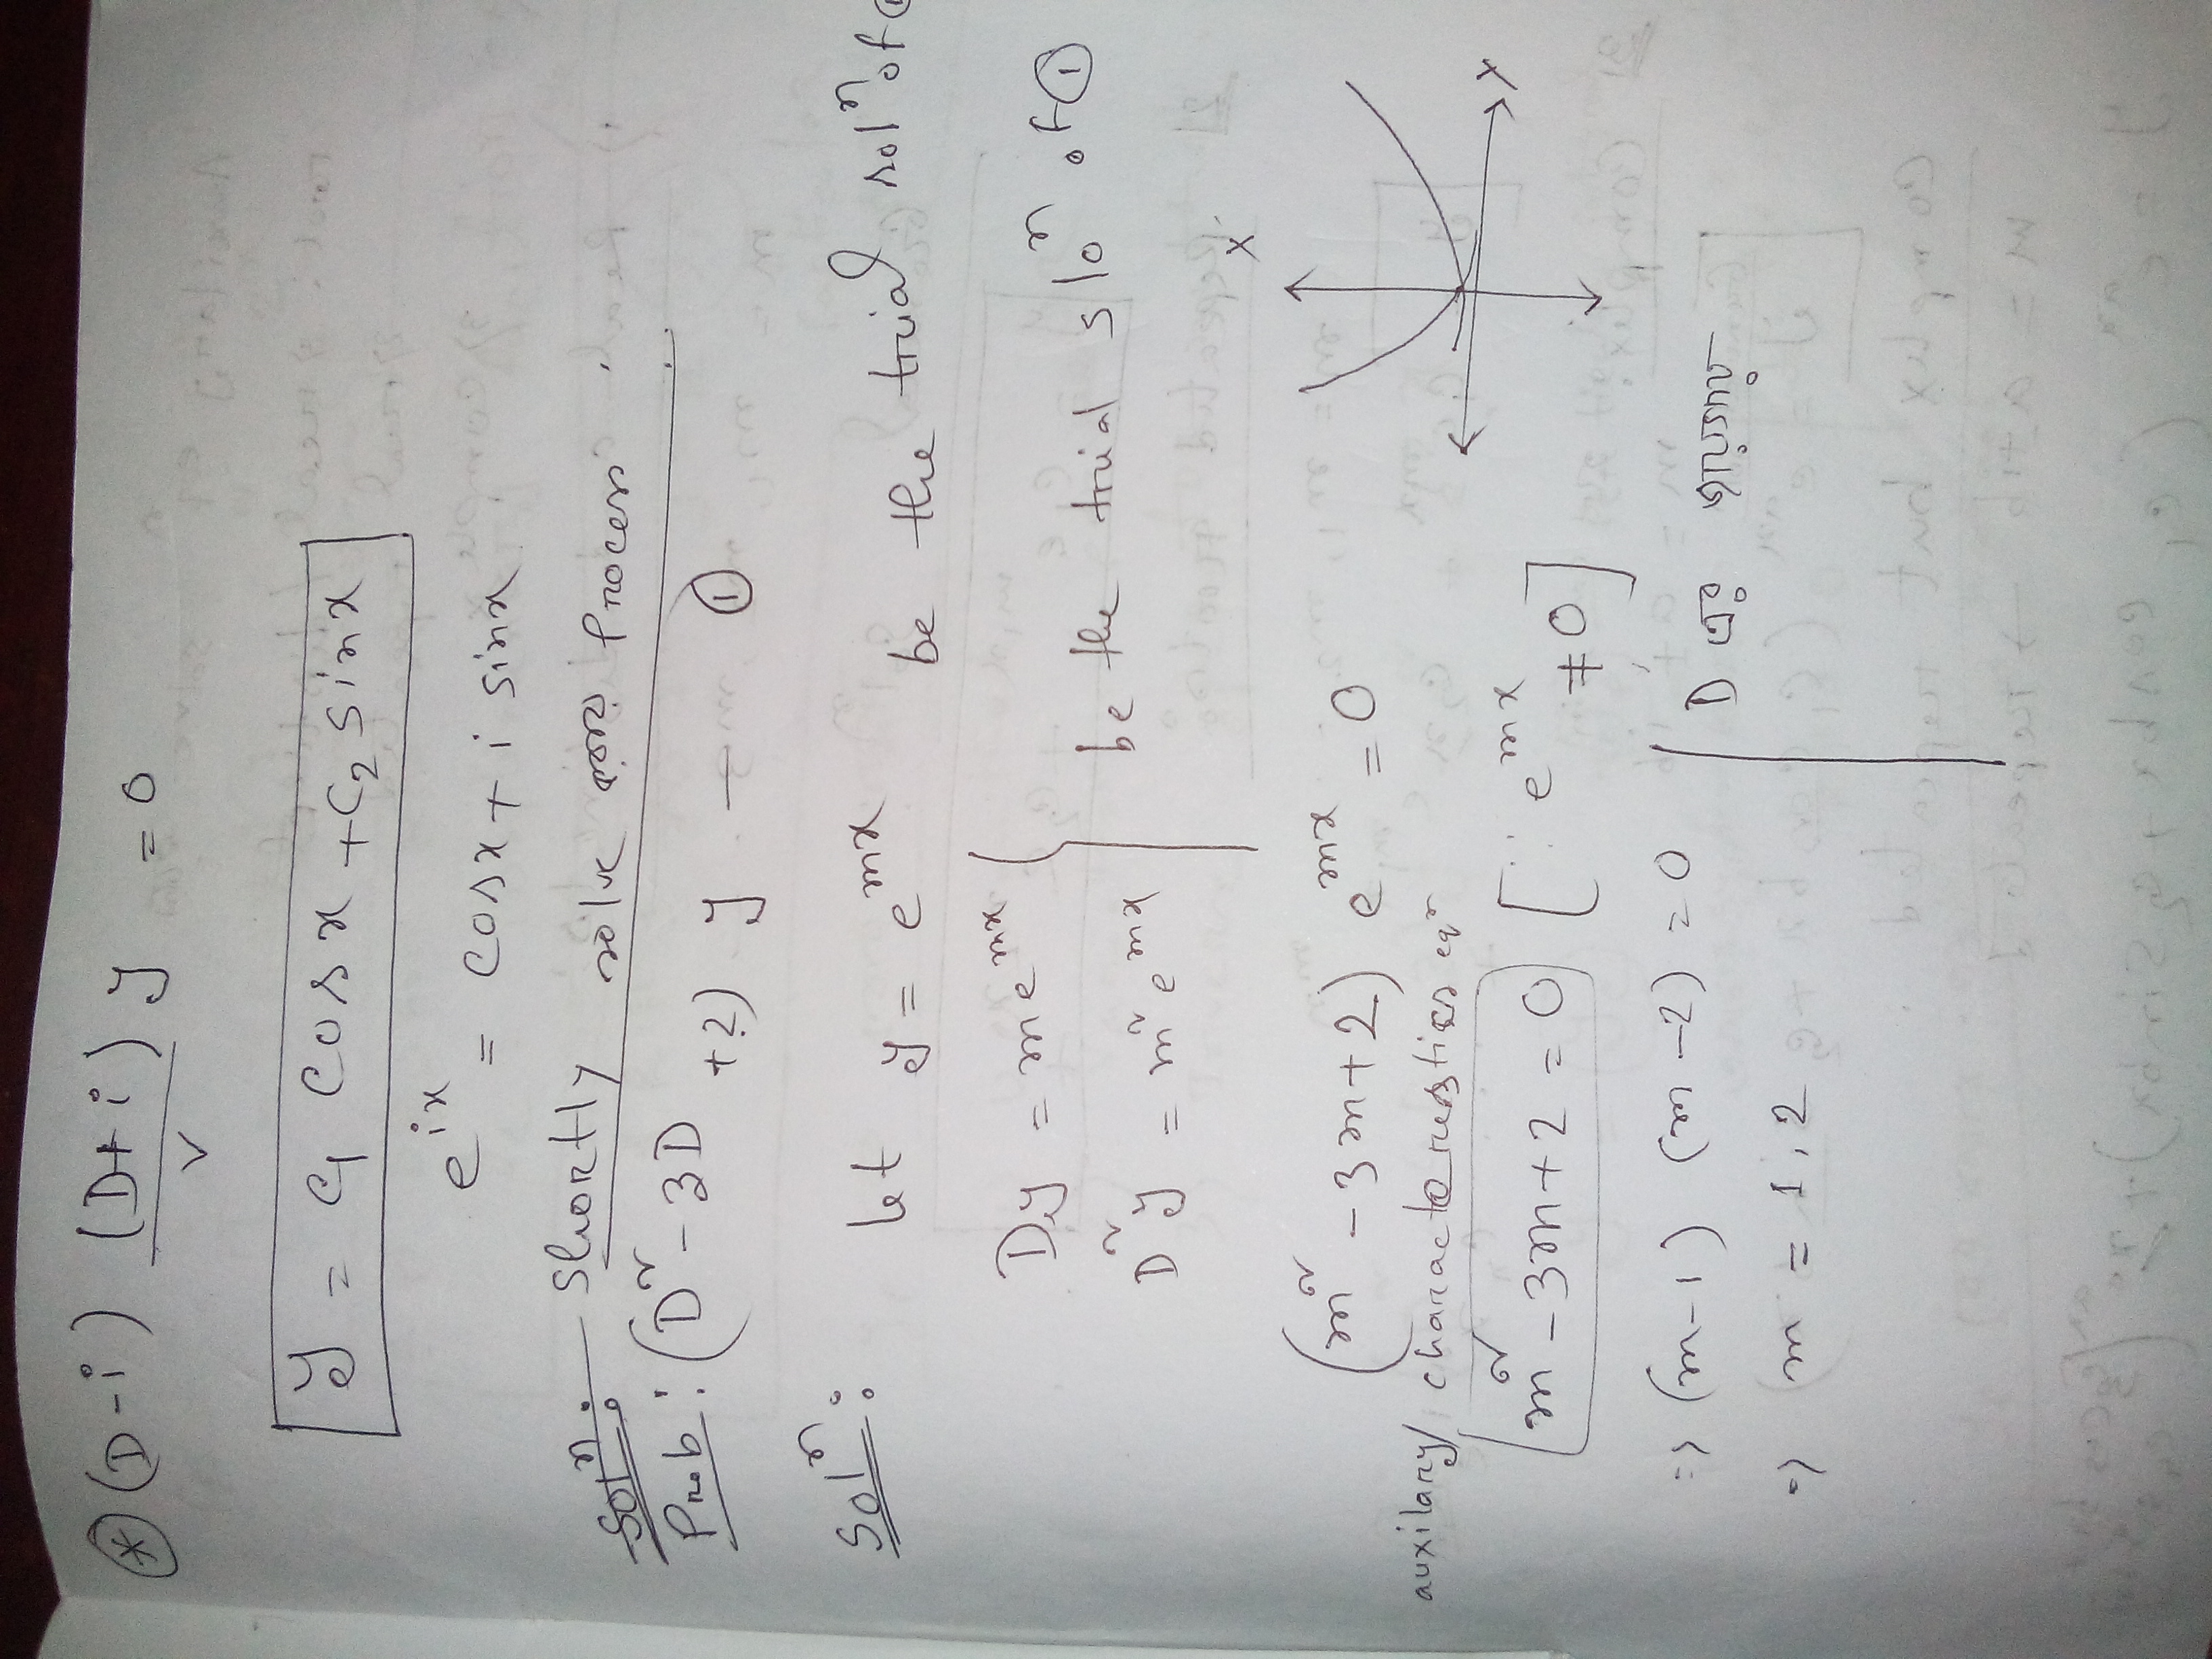 * (D-i) (D+i) y = 0
y = c₁ cosx + c₂ sinx
e^{ix} = cosx + i sinx
Solⁿ: Shortly solve করার Process
Prob: (D² - 3D +2) y — ①
Solⁿ: let y = e^{mx} be the trial solⁿ of ①
Dy = me^{mx}
D²y = m²e^{mx}
be the trial sloⁿ of ①
(m² - 3m + 2) e^{mx} = 0
auxilary/ characterestics eqⁿ
m² - 3m + 2 = 0 [∵ e^{mx} ≠ 0]
⇒ (m-1) (m-2) = 0
⇒ m = 1, 2
D এর
x
x